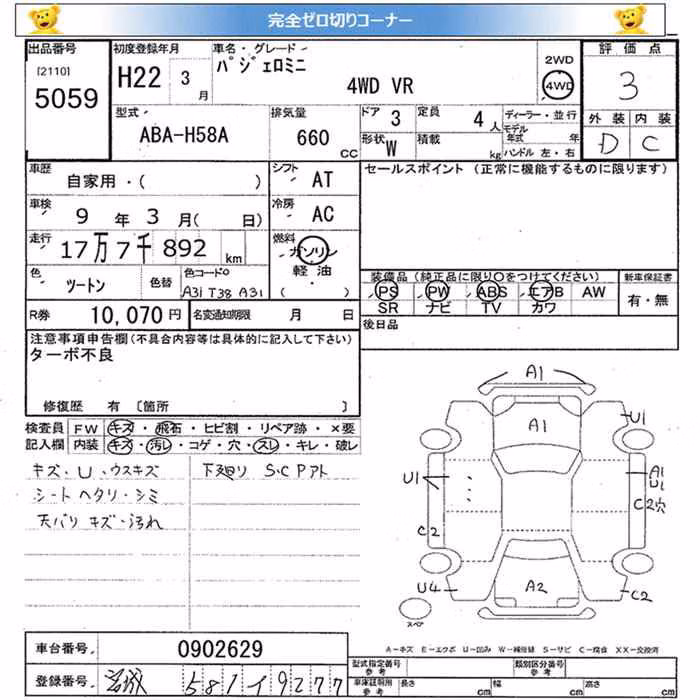 完全ゼロ切りコーナー
出品番号
[2110]
5059
初度登録年月
H22 3月
車名・グレード
パジェロミニ
4WD VR
2WD
4WD
評価点
3
外装 内装
D C
型式
ABA-H58A
排気量
660 CC
ドア 3
定員 4人
形状 W
積載 kg
ディーラー・並行
モデル年式 年
ハンドル 左・右
車歴
自家用・( )
シフト AT
車検
9年 3月( 日)
冷房 AC
走行
17万7千892 km
燃料
ガソリン
軽油
( )
色
ツートン
色替
色コードNo
A31 T38 A31
R券 10,070円
名変通知期限 月 日
セールスポイント (正常に機能するものに限ります)
装備品 (純正品に限り〇をつけてください)
PS PW ABS エアB AW
SR ナビ TV カワ
新車保証書
有・無
後日品
注意事項申告欄(不具合内容等は具体的に記入して下さい)
ターボ不良
修復歴 有 [箇所 ]
検査員記入欄
FW キズ・飛石・ヒビ割・リペア跡・×要
内装 キズ・汚レ・コゲ・穴・スレ・キレ・破レ
キズ・U・ウスキズ
シートヘタリ・シミ
天バリ キズ・汚れ
下廻り S・C Pアト
A1
A1
U1
U1
A1
U1
C2穴
C2
A2
U4
C2
スペア
A-キズ E-エクボ U-凹み W-補修跡 S-サビ C-腐食 XX-交換済
車台番号 0902629
登録番号 宮城 581 イ 9277
型式指定番号 参考
類別区分番号 参考
車庫証明用 参考
長さ cm 幅 cm 高さ cm